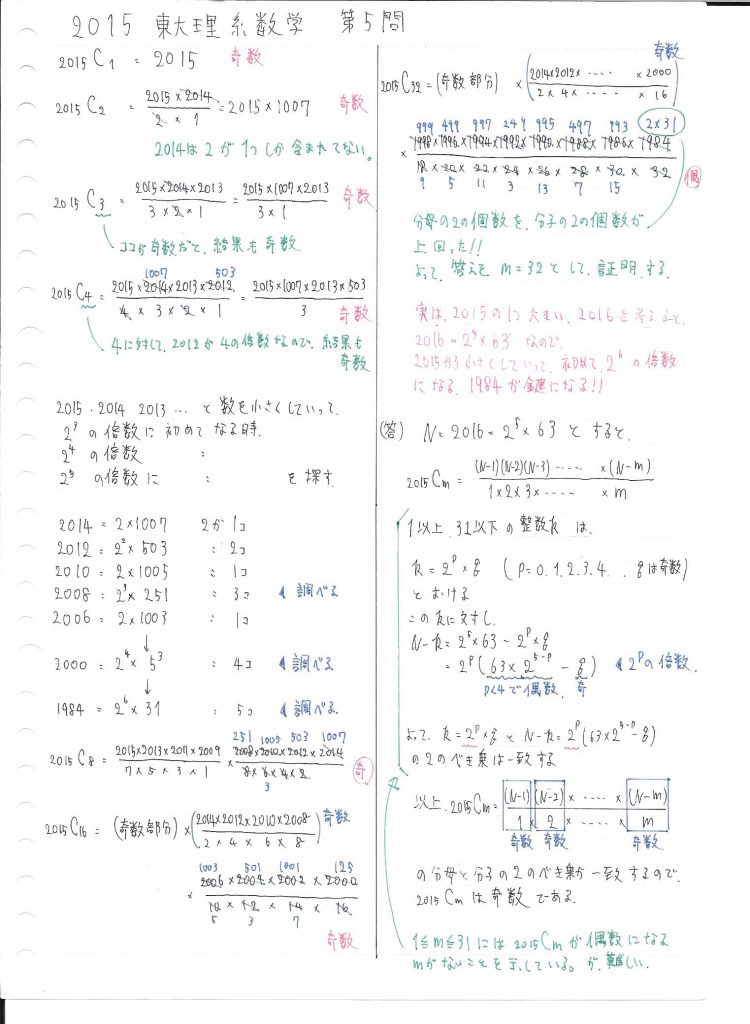 2015 東大理系数学 第5問
2015C1 = 2015 奇数
2015C2 = 2015×2014 / 2×1 = 2015×1007 奇数
2014は2が1つしか含まれてない。
2015C3 = 2015×2014×2013 / 3×2×1 = 2015×1007×2013 / 3×1 奇数
ココが奇数だと、結果も奇数
1007 503
2015C4 = 2015×2014×2013×2012 / 4×3×2×1 = 2015×1007×2013×503 / 3 奇数
4に対して、2012が4の倍数なので、結果も
奇数
2015・2014 2013 … と数を小さくしていって、
2^3 の倍数に初めてなる時、
2^4 の倍数 :
2^5 の倍数に : を探す
2014 = 2×1007 2が1コ
2012 = 2^2×503 : 2コ
2010 = 2×1005 : 1コ
2008 = 2^3×251 : 3コ ◀調べる
2006 = 2×1003 : 1コ
↓
2000 = 2^4×5^3 : 4コ ◀調べる
↓
1984 = 2^6×31 : 5コ ◀調べる
251 1005 503 1007
2015C8 = 2015×2013×2011×2009 / 7×5×3×1 × 2008×2010×2012×2014 / 8×6×4×2 奇
3
2015C16 = (奇数部分) × (2014×2012×2010×2008 / 2×4×6×8) 奇数
1003 501 1001 125
× 2006×2004×2002×2000 / 10×12×14×16
5 3 7
奇数
奇数
2015C32 = (奇数部分) × (2014×2012×‥‥×2000 / 2×4×‥‥×16)
999 499 997 249 995 497 993 2×31
× 1998×1996×1994×1992×1990×1988×1986×1984 / 18×20×22×24×26×28×30×32 偶
9 5 11 3 13 7 15
分母の2の個数を、分子の2の個数が、
上回った!!
よって、答えを m=32 として、証明する。
実は、2015の1つ大きい、2016を考えると、
2016 = 2^5×63 なので、
2015から小さくしていって、初めて、2^6 の倍数
になる、1984が鍵になる!!
(答) N=2016=2^5×63 とすると、
2015Cm = (N-1)(N-2)(N-3)‥‥×(N-m) / 1×2×3×‥‥×m
1以上、31以下の整数kは、
k=2^p×q (p=0.1.2.3.4. qは奇数)
とおける
このkに対し、
N-k = 2^5×63-2^p×q
= 2^p(63×2^5-p - q) ◀2^pの倍数。
p<4で偶数、奇
よって、k=2^p×q と N-k=2^p(63×2^5-p-q)
の2のべき乗は一致する
以上、2015Cm = (N-1) (N-2) ×‥‥× (N-m) / 1×2×‥‥×m
奇数 奇数 奇数
の分母と分子の2のべき乗が一致するので、
2015Cm は奇数である。
1≦m≦31には 2015Cm が偶数になる
mがないことを示している。が、難しい。